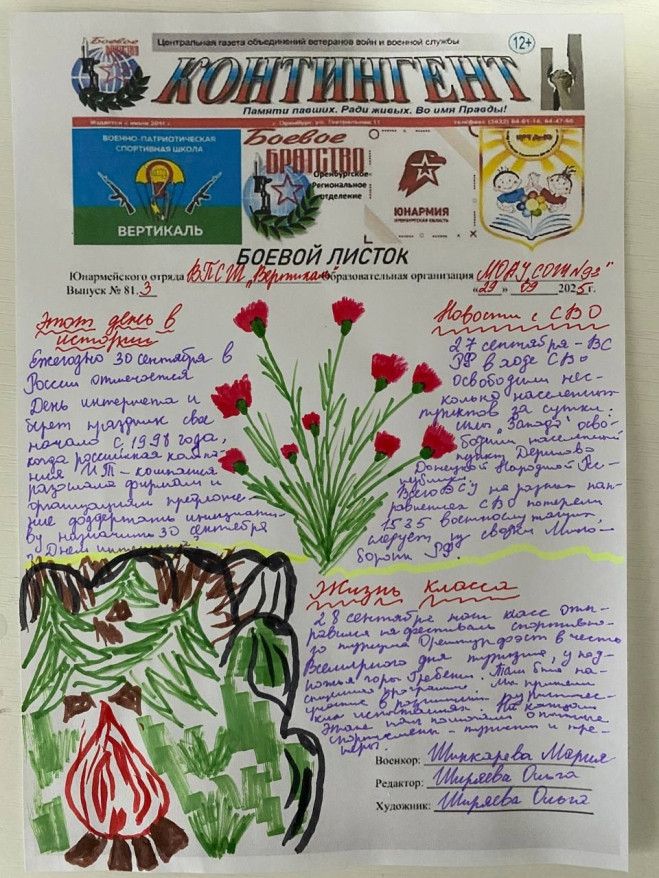 Центральная газета объединений ветеранов войн и военной службы
12+
Боевое
братство
КОНТИНГЕНТ
Памяти павших. Ради живых. Во имя Правды!
Издается с июля 2011 г.
г. Оренбург, ул. Театральная 11
ВОЕННО-ПАТРИОТИЧЕСКАЯ
СПОРТИВНАЯ ШКОЛА
ВЕРТИКАЛЬ
Боевое
БРАТСТВО
Оренбургское
Региональное
отделение
ЮНАРМИЯ
ОРЕНБУРГСКАЯ ОБЛАСТЬ
БОЕВОЙ ЛИСТОК
Юнармейского отряда ВПСШ "Вертикаль" Образовательная организация МОАУ "СОШ №93"
Выпуск № 81.3 «29» 09 2025 г.
Этот день в
истории
Ежегодно 30 сентября в
России отмечается
День интернета и
берет праздник свое
начало с 1998 года,
когда российская компа-
ния ИТ - компания
разослала фирмам и
организациям предложе-
ние поддержать инициати-
ву назначить 30 сентября
"Днем интернета"
Новости с СВО
27 сентября - ВС
РФ в ходе СВО
освободили нес-
колько населенных
пунктов за сутки:
силы "Запада" осво-
бодили населенный
пункт
Донецкой Народной Рес-
публики.
Всего ВСУ на разных нап-
равлениях СВО потеряли
1535 военнослужащих,
следует из сводки Мино-
бороны РФ.
Жизнь класса
28 сентября наш класс отп-
равился на фестиваль спортивно-
го туризма в честь
Всемирного дня туризма, у под-
ножья горы Гребени. Там была на-
сыщенная программа. Мы приняли
участие в различных туристичес-
ких испытаниях. На каждом
этапе нам помогали опытные
спортсмены - туристы и тре-
неры.
Военкор: Шинкарева Мария
Редактор: Ширяева Ольга
Художник: Ширяева Ольга